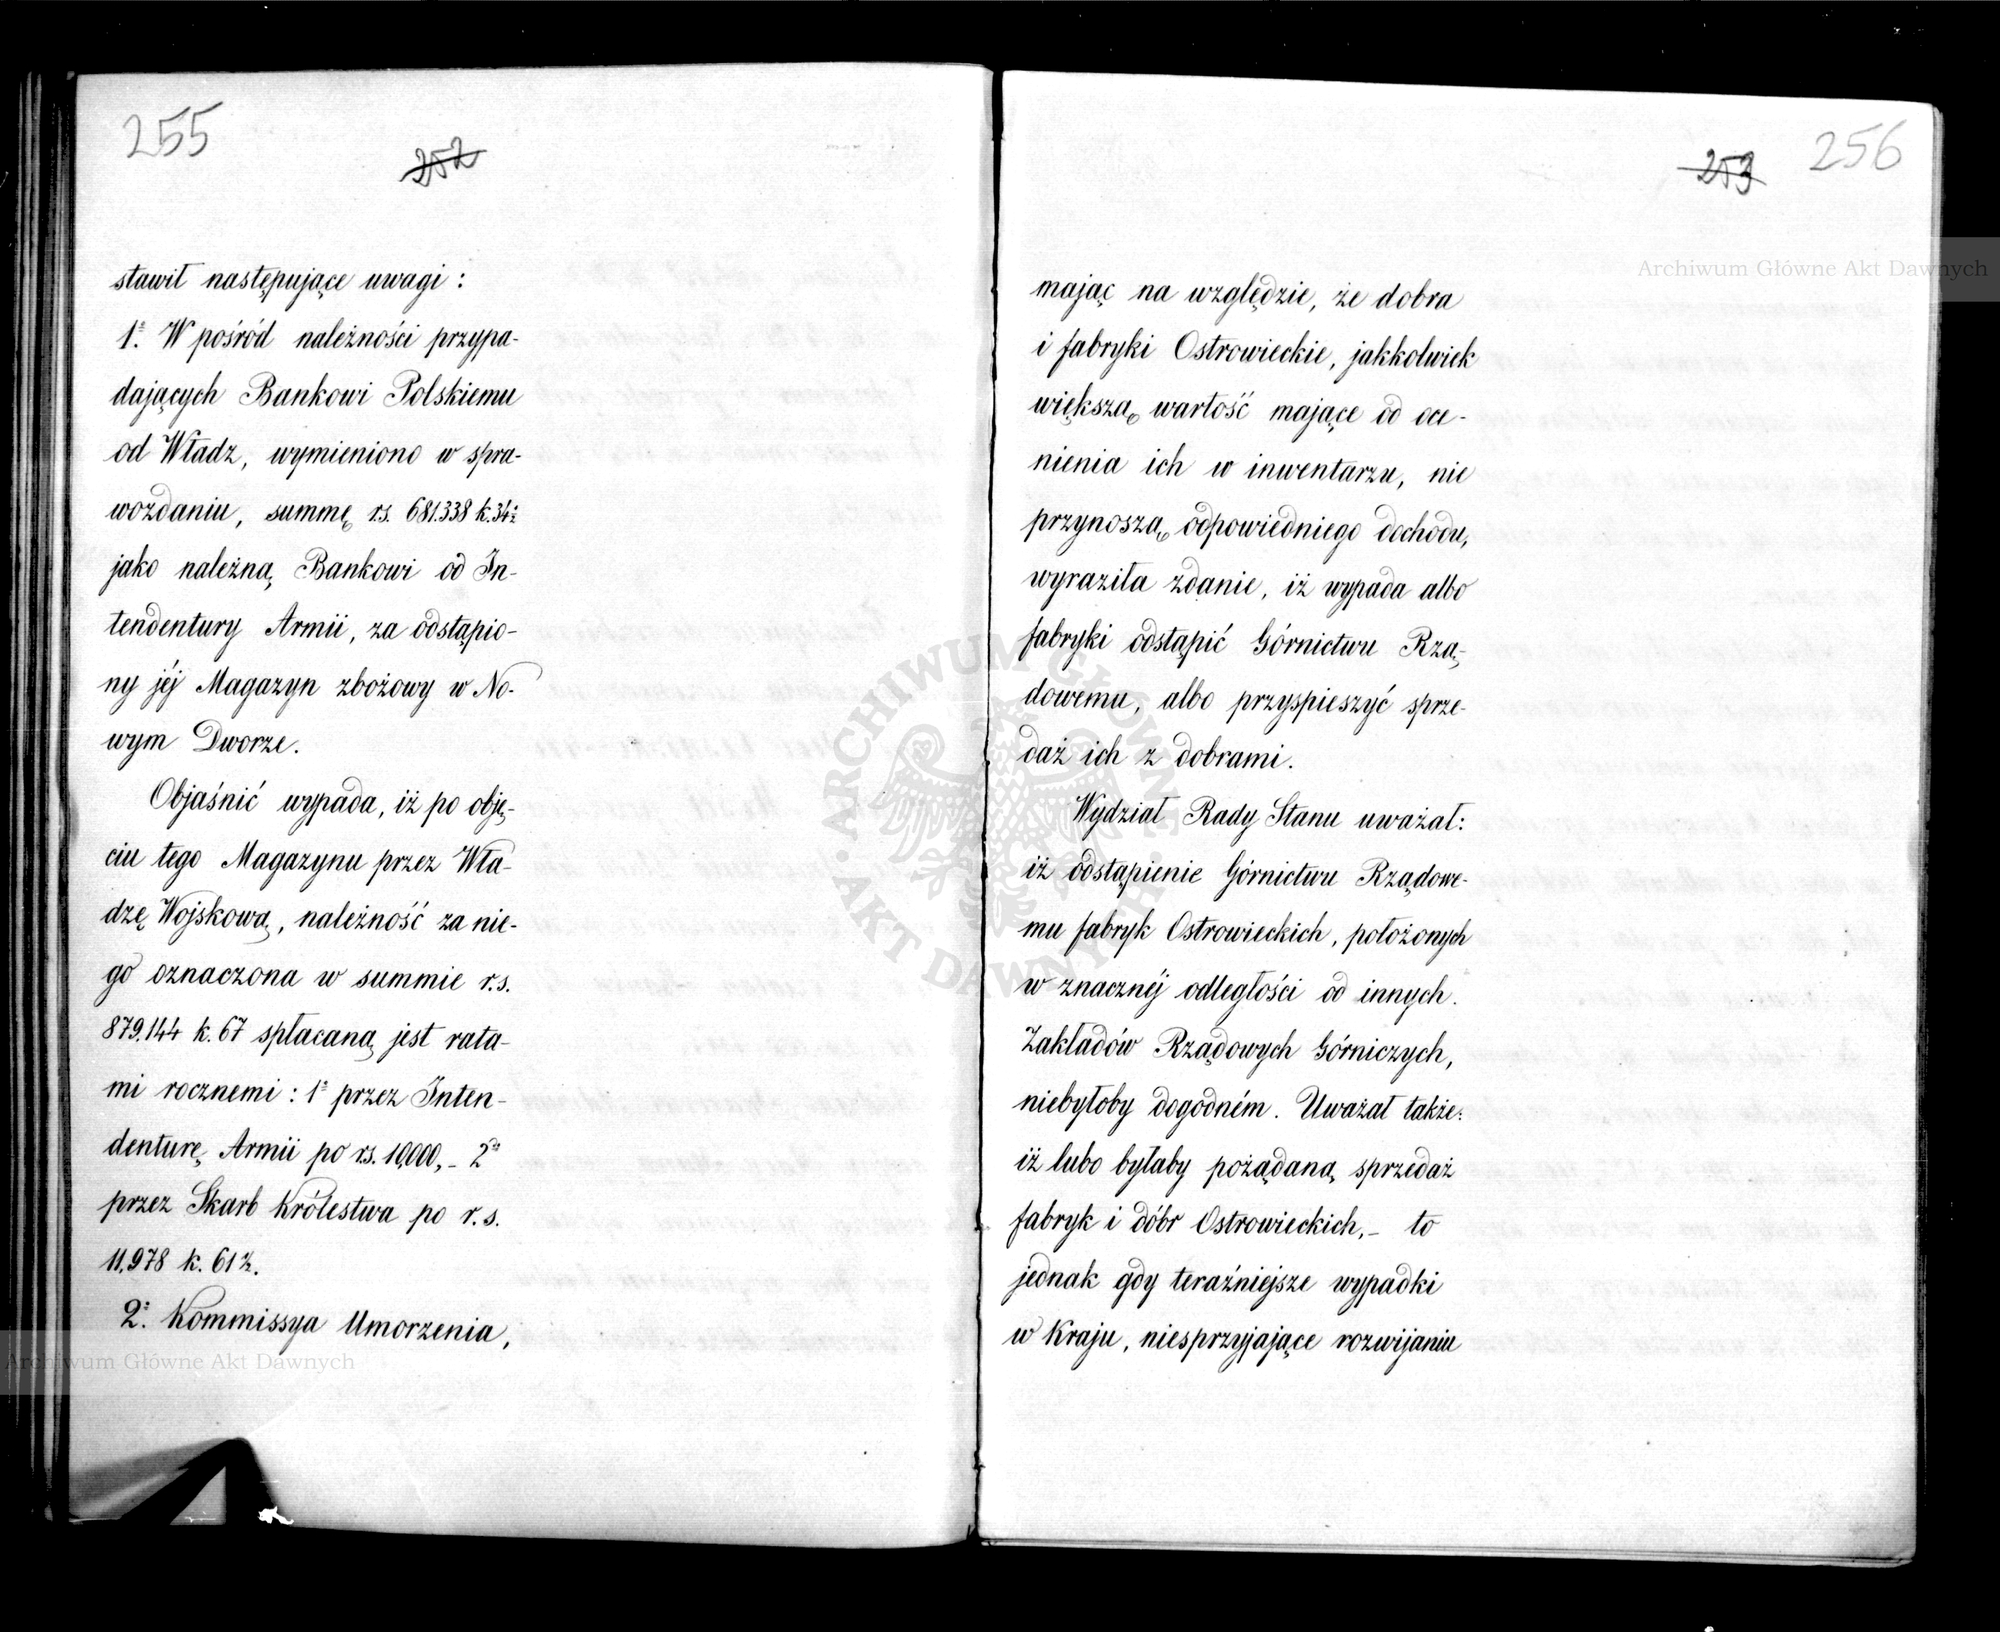 255
252
stawił następujące uwagi :
1º W pośród należności przypa-
dających Bankowi Polskiemu
od Władz, wymieniono w spra-
wozdaniu, summę rs. 681.338 k. 34½
jako należną Bankowi od In-
tendentury Armii, za odstąpio-
ny jéj Magazyn zbożowy w No-
wym Dworze.
Objaśnić wypada, iż po obję-
ciu tego Magazynu przez Wła-
dzę Wojskową, należność za nie-
go oznaczona w summie r.s.
879.144 k. 67 spłacaną jest rata-
mi rocznemi : 1º przez Inten-
denturę Armii po rs. 10,000,_ 2º
przez Skarb Królestwa po r.s.
11,978 k. 61½.
2º Kommissya Umorzenia,
253
256
mając na względzie, że dobra
i fabryki Ostrowieckie, jakkolwiek
większą wartość mające od oce-
nienia ich w inwentarzu, nie
przynoszą odpowiedniego dochodu,
wyraziła zdanie, iż wypada albo
fabryki odstąpić Górnictwu Rzą-
dowemu, albo przyspieszyć sprze-
daż ich z dobrami.
Wydział Rady Stanu uważał:
iż odstąpienie Górnictwu Rządowe-
mu fabryk Ostrowieckich, położonych
w znacznéj odległości od innych
Zakładów Rządowych Górniczych,
niebyłoby dogodném. Uważał także:
iż lubo byłaby pożądaną sprzedaż
fabryk i dóbr Ostrowieckich,_ to
jednak gdy teraźniejsze wypadki
w Kraju, niesprzyjające rozwijaniu
Archiwum Główne Akt Dawnych
Archiwum Główne Akt Dawnych
ARCHIWUM GŁÓWNE
AKT DAWNYCH